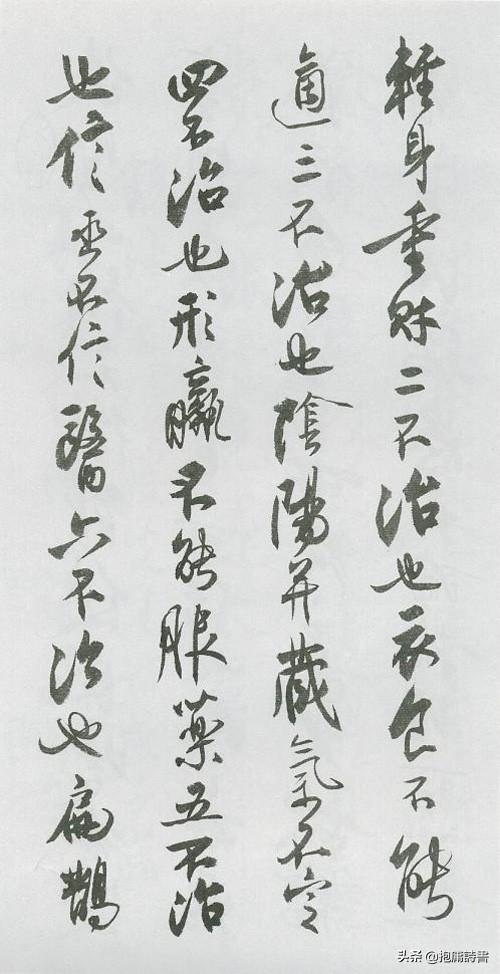 輕身重財二不治也衣食不能
適三不治也陰陽并藏氣不定
四不治也形羸不能服藥五不治
也信巫不信醫六不治也扁鵲
头条 @抱膝詩書